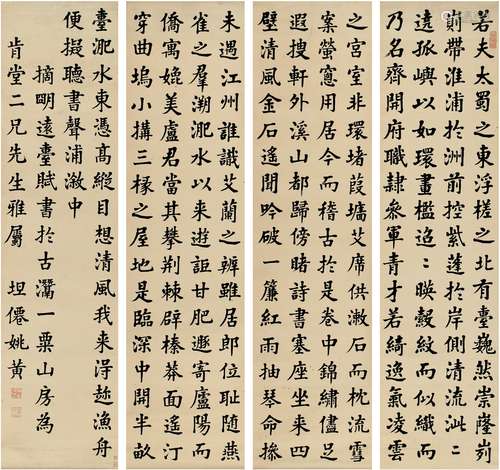 若夫太蜀之東浮槎之北有臺巍然崇隆峛
崱帶淮浦於洲前控紫蓬於岸側清流泚〻
遠孤嶼以如環畫檻迢〻暎縠紋而似織而
乃名齊開府職隷叅軍青才若綺逸氣凌雲
之宮室非環堵葭墻艾席供漱石而枕流雪
案螢窻用居今而稽古於是卷中錦繡儘足
遐搜軒外溪山都歸傍睹詩書塞座坐來四
壁清風金石遙聞吟破一簾紅雨抽琴命操
未遇江州誰識艾蘭之辨雖居郎位耻随燕
雀之羣溯淝水以来遊詎甘肥遯寄廬陽而
僑寓娩美盧君當其攀荆棘辟榛莽面遙汀
穿曲塢小搆三椽之屋地是臨深中開半畝
臺淝水東憑高縱目想清風我来浔趂漁舟
便擬聽書聲浦漵中
摘明遠臺賦書於古灊一粟山房為
肯堂二兄先生雅屬 坦僊姚黄